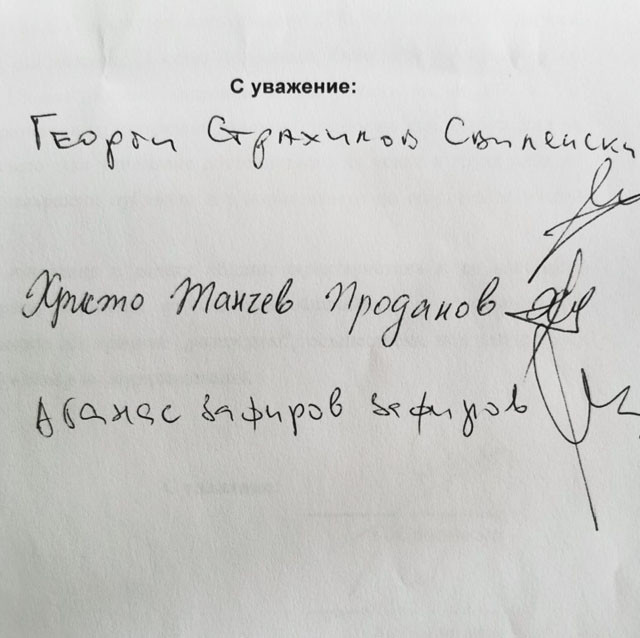 С уважение:
Георги Страхилов Свиленски
Христо Танчев Проданов
Атанас Зафиров Зафиров